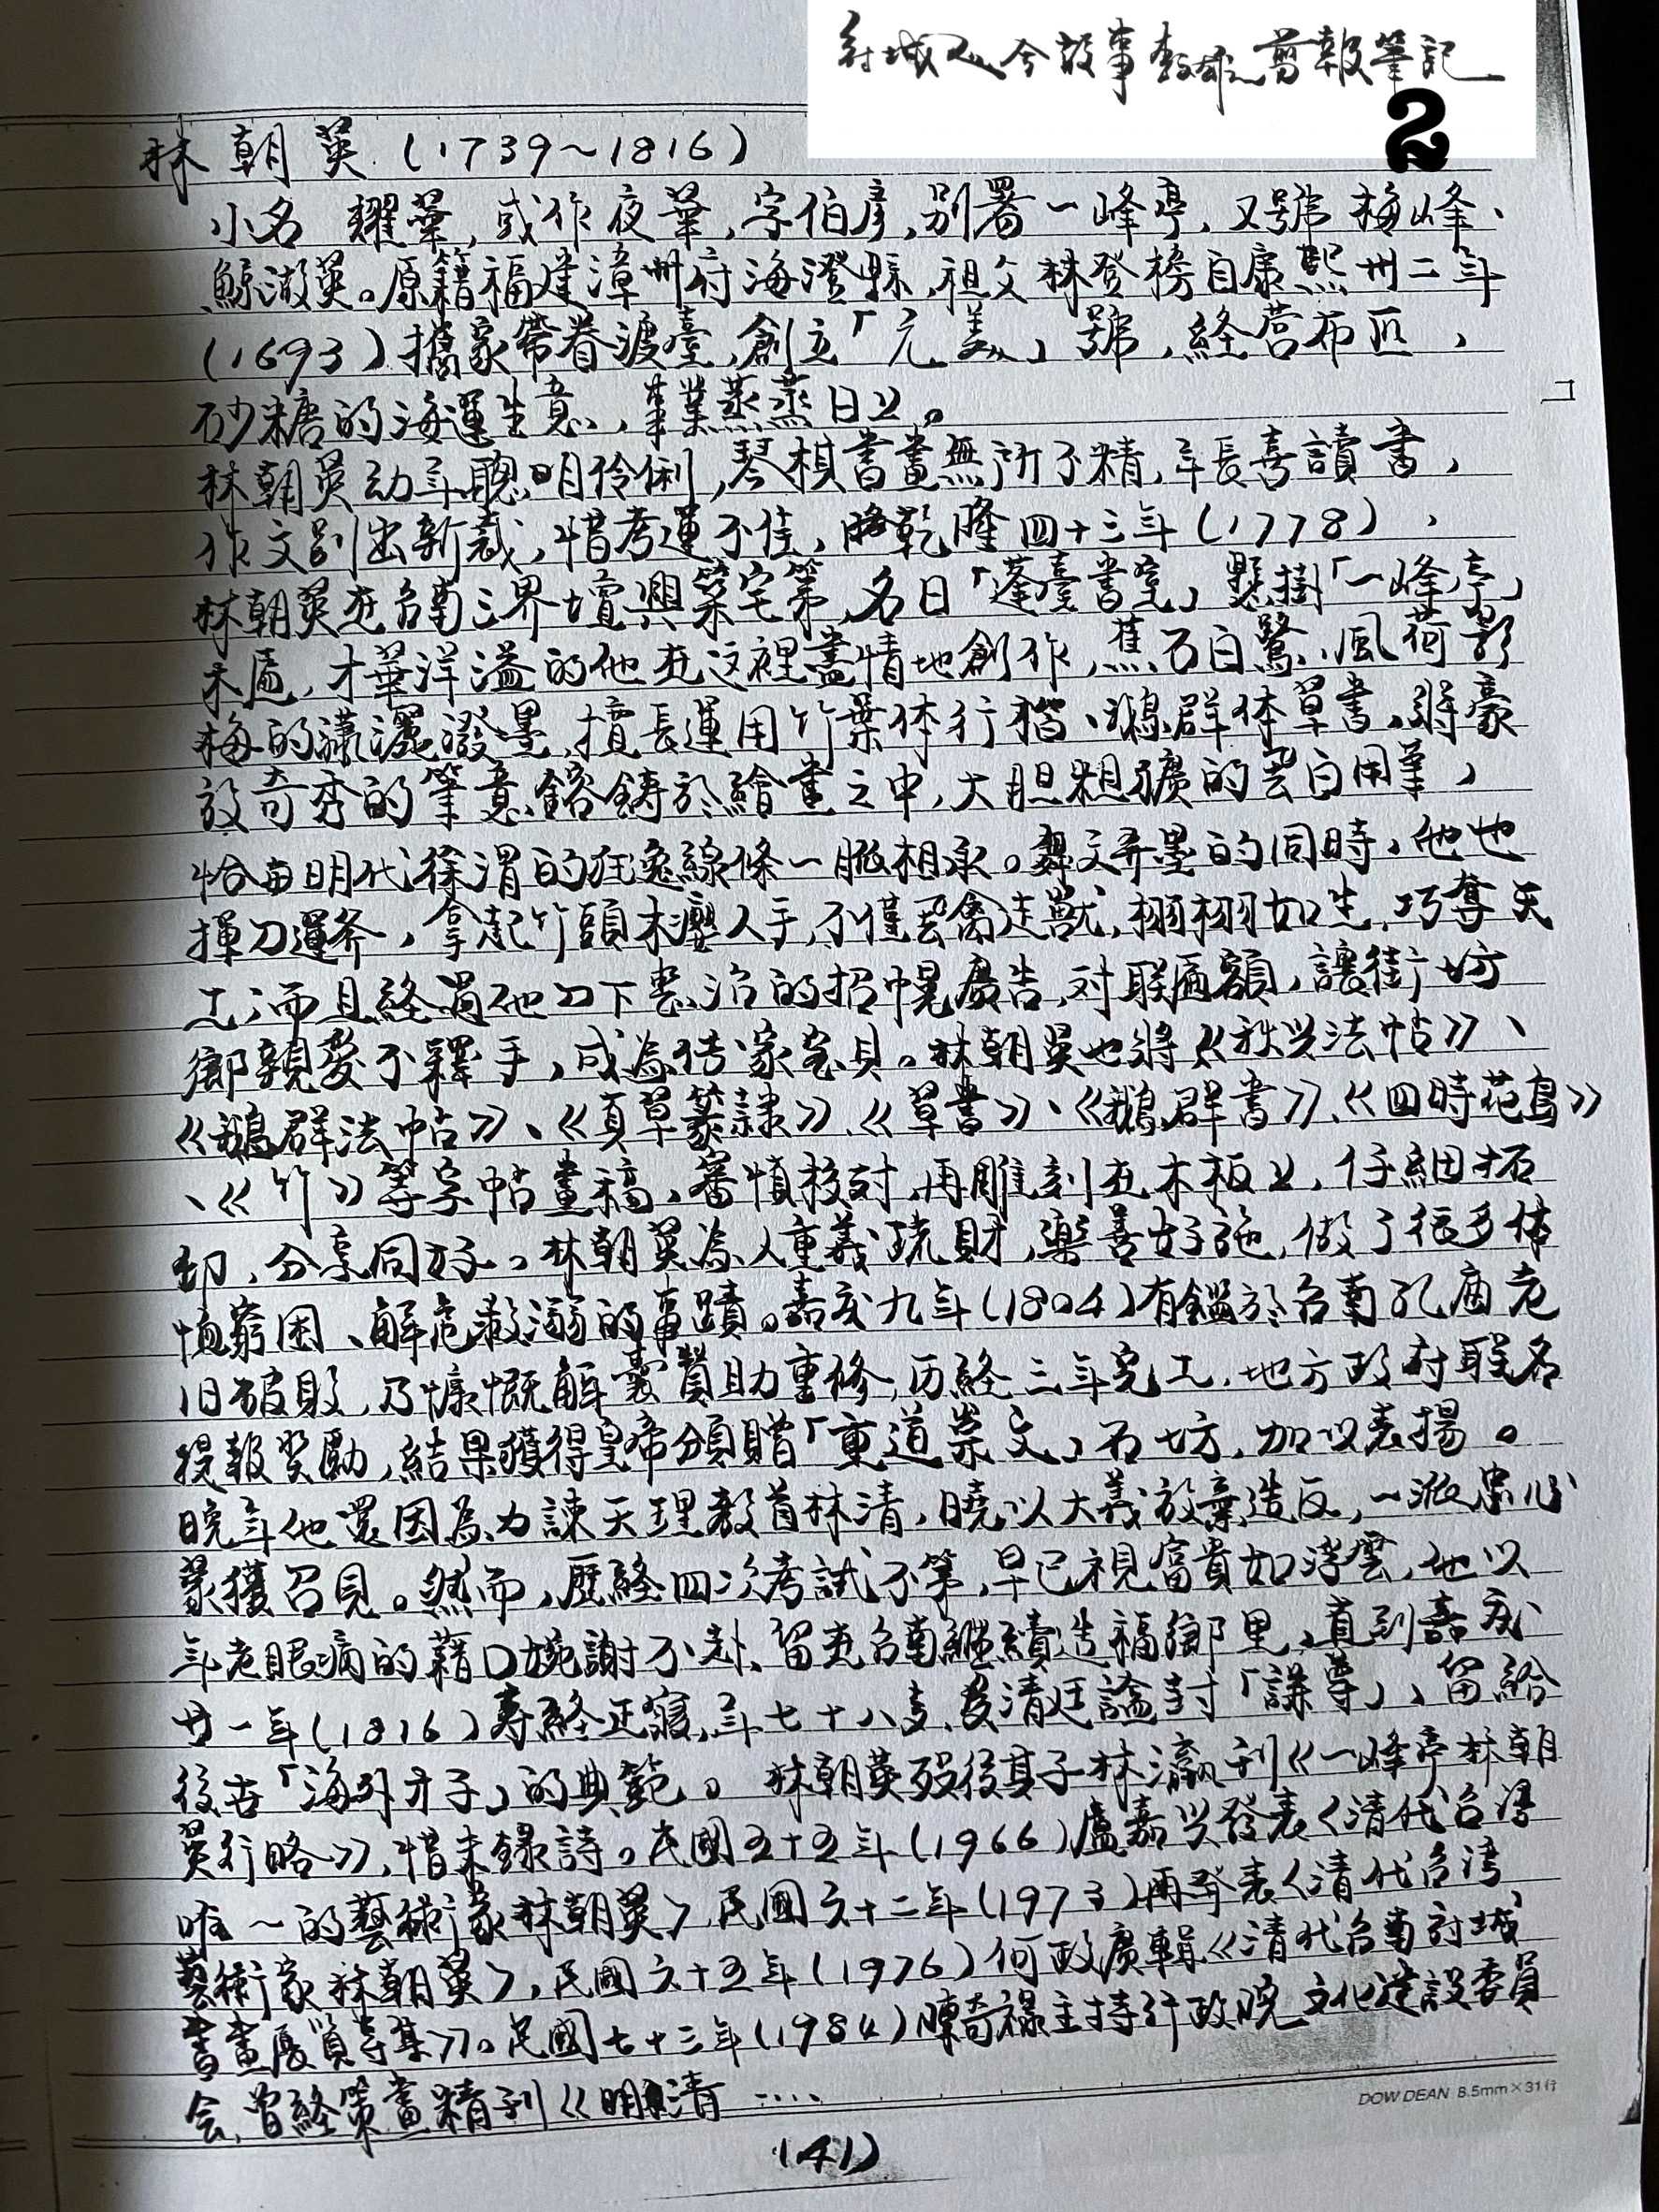 府城古今故事 剪報筆記
2
林朝英(1739~1816)
小名 耀華,或作夜華,字伯彥,別署一峰亭,又號梅峰、
鯨湖英。原籍福建漳州府海澄縣,祖父林登榜自康熙卅二年
(1693)攜家帶眷渡臺,創立「元美」號,経营布匹,
砂糖的海運生意,事業蒸蒸日上。
林朝英幼年聰明伶俐,琴棋書畫無所不精,年長喜讀書,
作文別出新裁,惜考運不佳,時乾隆四十三年(1778),
林朝英在台南三界壇興築宅第,名曰「蓬臺書室」懸掛「一峰亭」
木匾,才華洋溢的他在这裡盡情地創作,蕉石白鷺、風荷影
梅的瀟灑潑墨,擅長運用竹葉体行楷、鵝群体草書,將豪
放奇秀的筆意鎔鑄於繪畫之中,大胆粗獷的飛白用筆,
恰與明代徐渭的狂逸線條一脈相承。舞文弄墨的同時,他也
揮刀運斧,拿起竹頭木癭入手,不僅飛禽走獸,栩栩如生,巧奪天
工;而且経過他刀下裝治的招幌廣告,对联匾額,讓街坊
鄉親愛不釋手,成為传家宝貝。林朝英也將《秋兴法帖》、
《鵝群法帖》、《真草篆隸》、《草書》、《鵝群書》、《四時花鳥》
、《竹》等字帖畫稿,審慎校对,再雕刻在木板上,仔細拓
印,分享同好。林朝英為人重義疏財,樂善好施,做了很多体
恤窮困、解危救溺的事蹟。嘉庆九年(1804)有鑑於台南孔庙老
旧破敗,乃慷慨解囊贊助重修,历経三年完工,地方政府联名
提報奖勵,結果獲得皇帝頒贈「重道崇文」石坊,加以表揚。
晚年他還因為力諫天理教首林清,曉以大義放棄造反,一派忠心
蒙獲召見。然而,歷経四次考試不第,早已視富貴如浮雲,他以
年老眼病的藉口婉謝不赴,留在台南繼續造福鄉里,直到嘉庆
廿一年(1816)壽終正寢,年七十八歲,受清廷諡封「謙尊」,留給
後世「海外才子」的典範。林朝英歿後其子林瀛刊《一峰亭林朝
英行略》,惜未錄詩。民國五十五年(1966)盧嘉兴發表〈清代台湾
唯一的藝術家林朝英〉,民國六十二年(1973)再發表〈清代台湾
藝術家林朝英〉,民國六十五年(1976)何政廣輯《清代台南府城
書畫展覽專集》。民國七十三年(1984)陳奇祿主持行政院文化建設委員
会,曾経策畫精刊《明清……
DOW DEAN 8.5mm×31行
(41)